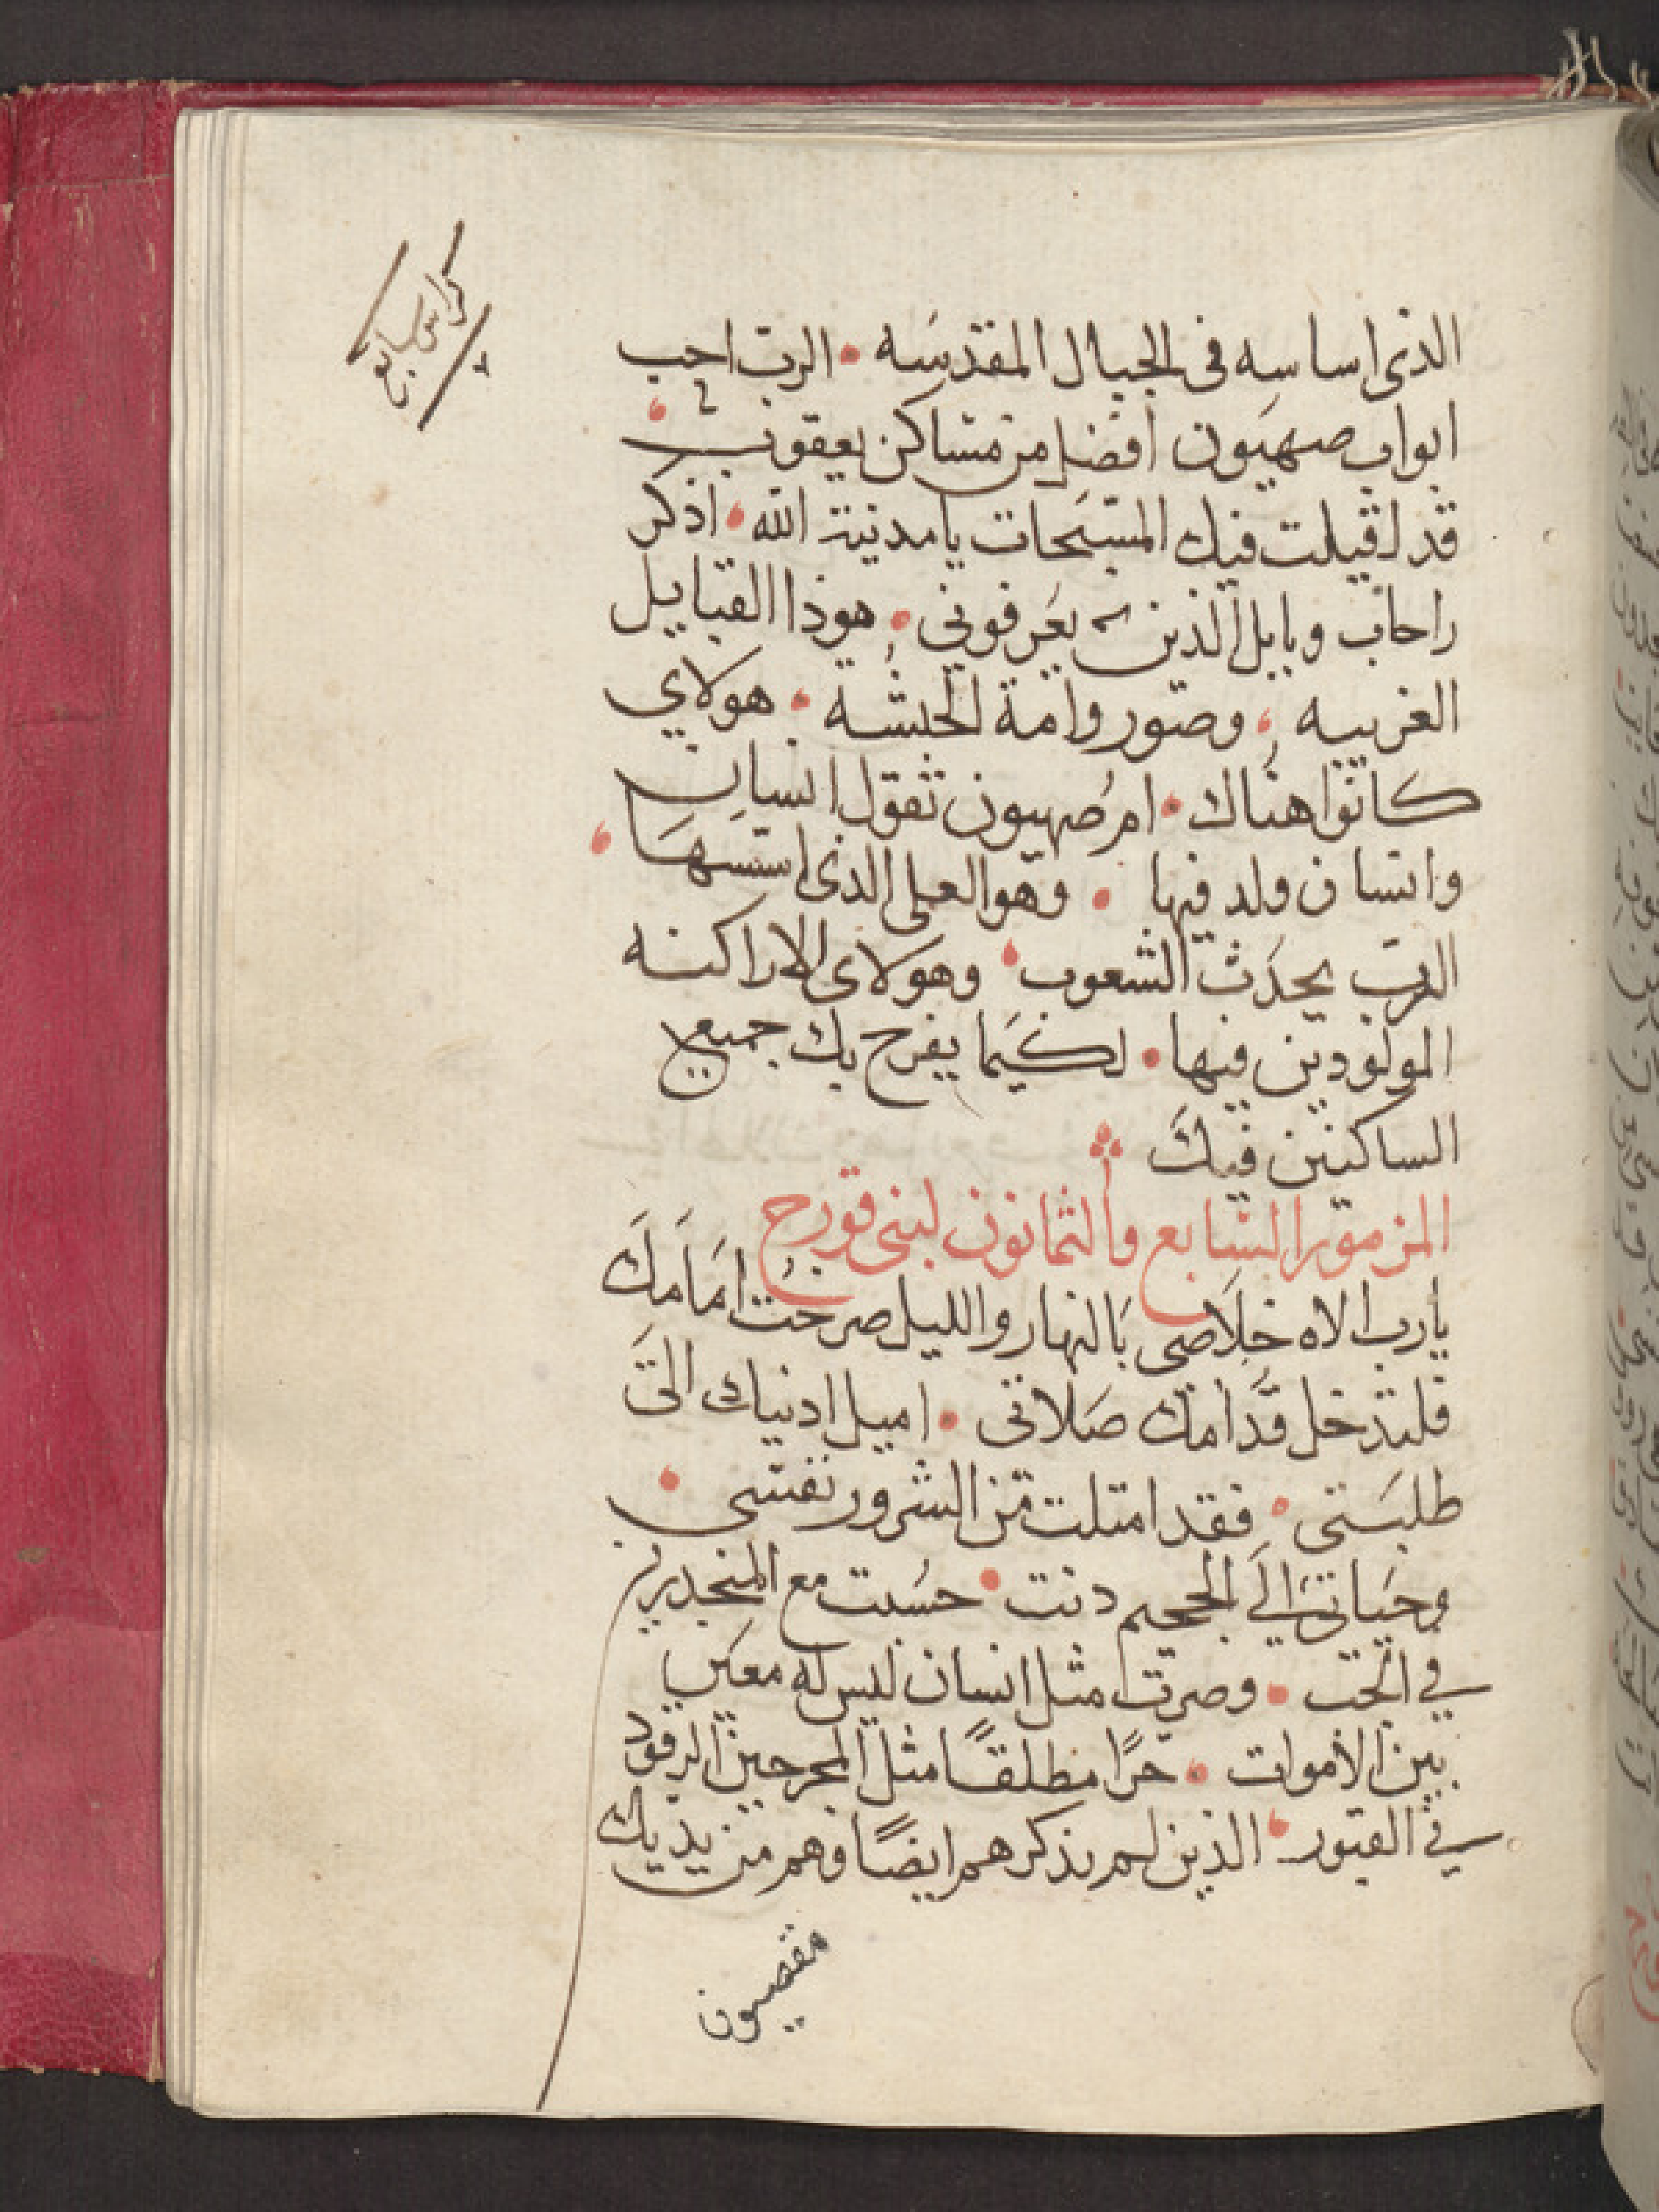 كراس سابع
الذى اساسه فى الجبال المقدسَه • الرب احب
ابواب صهيون افضل من مساكن يعقوب
قد لقيلت فيك المسبَحات يا مدينة الله • اذكر
راحاب وبابل الذين يعَرفوني • هوذا القبايل
الغريبه • وصور وامة الحبشه • هولاي
كانوا هناك • ام صُهيون تقول انسان
وانسان ولد فيها • وهو العلى الذى اسسهَا
الرب يحدَث الشعوب • وهولاى الاراكنه
المولودين فيها • لكيَما يفرح بك جميع
الساكنين فيكَ
المزمور السابع والثمانون لبنى قورح
يا رب الاه خلاَصى بَالنهار والليل صرخت امَامَكَ
فلتدخل قدَامك صَلاتى • اميل ادنيك الىَ
طلبَتى • فقد امتلت من الشرور نفسى •
وحيَاتى الَى الجحيم دنت • حسُبت مع المنحدرين
في الجب • وصرت مثل انسان ليس له معَين
بين الاموات • حرًا مطلقًا مثل المجرحين الرقود
في القبور • الذين لم تذكرهم ايضًا وهم من يديك
مقصيون